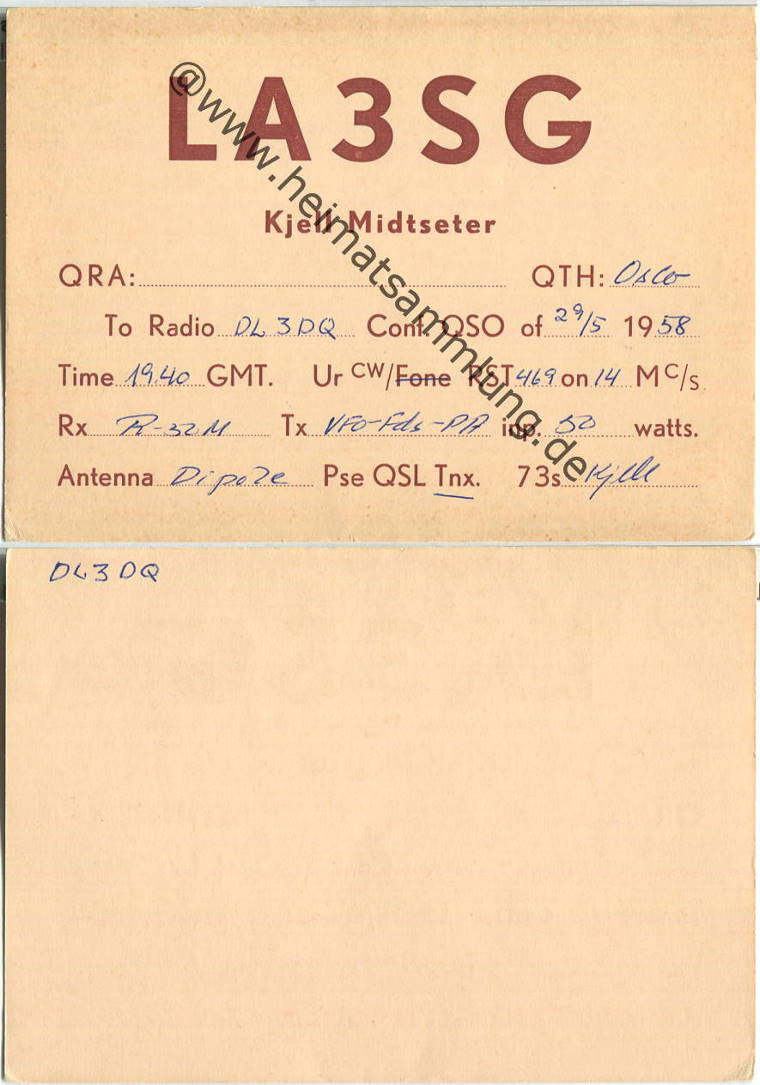 LA3SG
Kjell Midtseter
QRA: QTH: Oslo
To Radio DL3DQ Conf. QSO of 29/5 1958
Time 19.40 GMT. Ur CW/Fone RST 469 on 14 Mc/s
Rx R-32M Tx VFO-Fds-PA inp. 50 watts.
Antenna Dipole Pse QSL Tnx. 73s Kjell
@www.heimatsammlung.de
DL3DQ